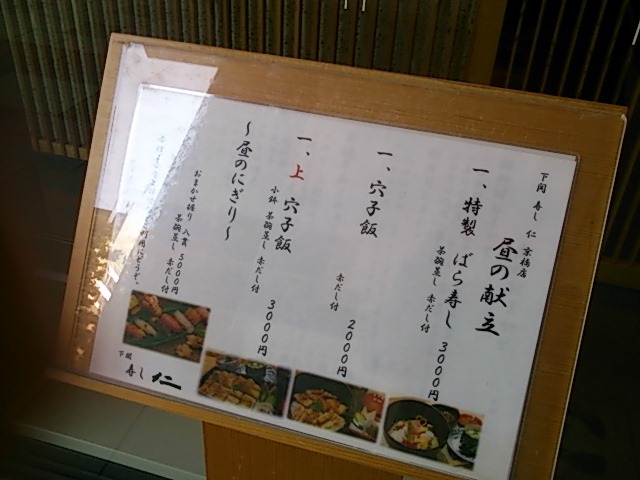 下関 寿し 仁 京橋店
昼の献立
一、特製 ばら寿し
茶碗蒸し 赤だし付
3000円
一、穴子飯
赤だし付
2000円
一、上 穴子飯
小鉢 茶碗蒸し 赤だし付
3000円
〜昼のにぎり〜
おまかせ握り 八貫 5000円
茶碗蒸し 赤だし付
下関
寿し 仁